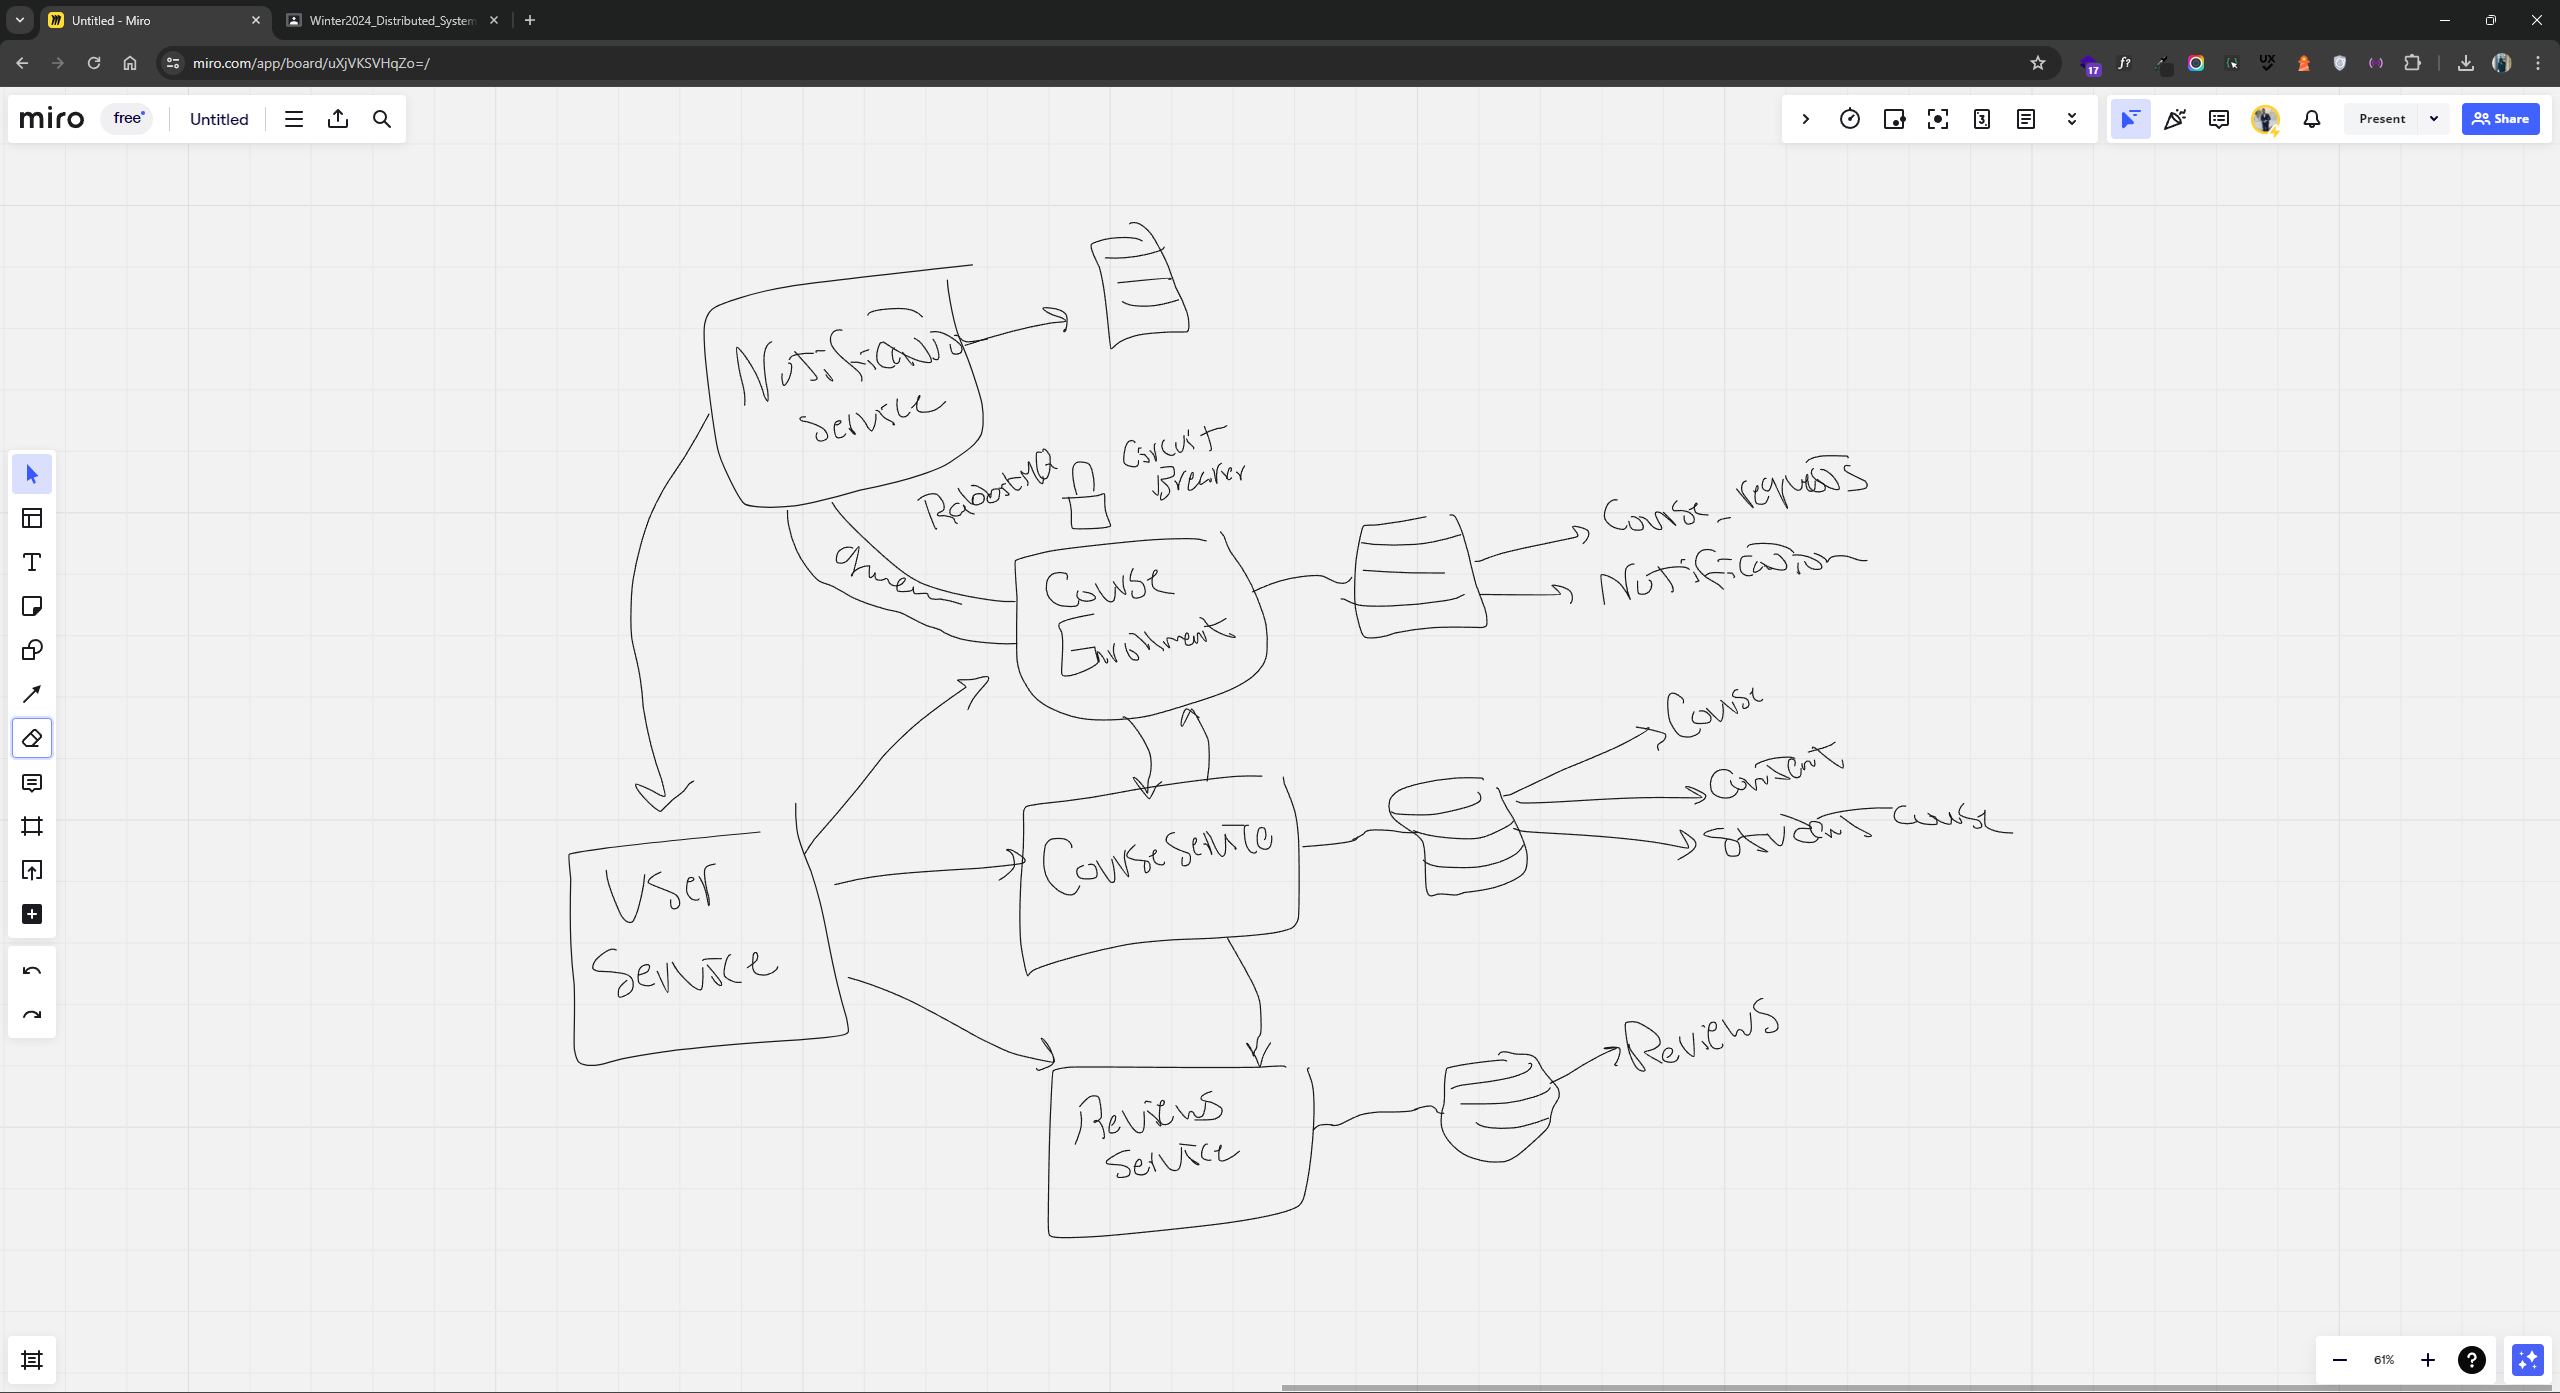 Untitled - Miro
Winter2024_Distributed_System
miro.com/app/board/uXjVKSVHqZo=/
17
f?
UX
miro
free
Untitled
3
Present
Share
Notification
Service
RabbitMQ
Circuit
Breaker
Queue
Course
Enrollment
Course_requests
Notification
Course
Content
Student Course
User
Service
Course Service
Reviews
Service
Reviews
61%